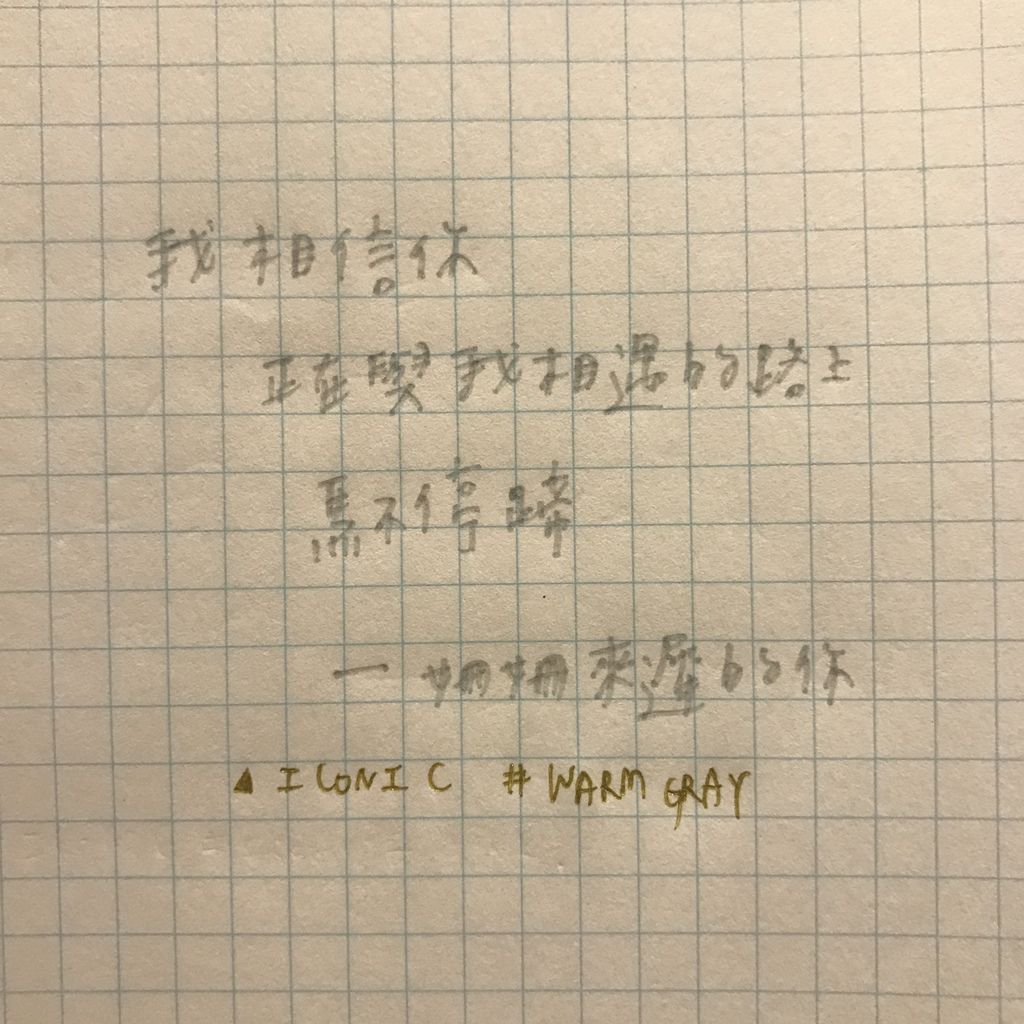 我相信你
正在與我相遇的路上
馬不停蹄
一姍姍來遲的你
▲ ICONIC # WARM GRAY